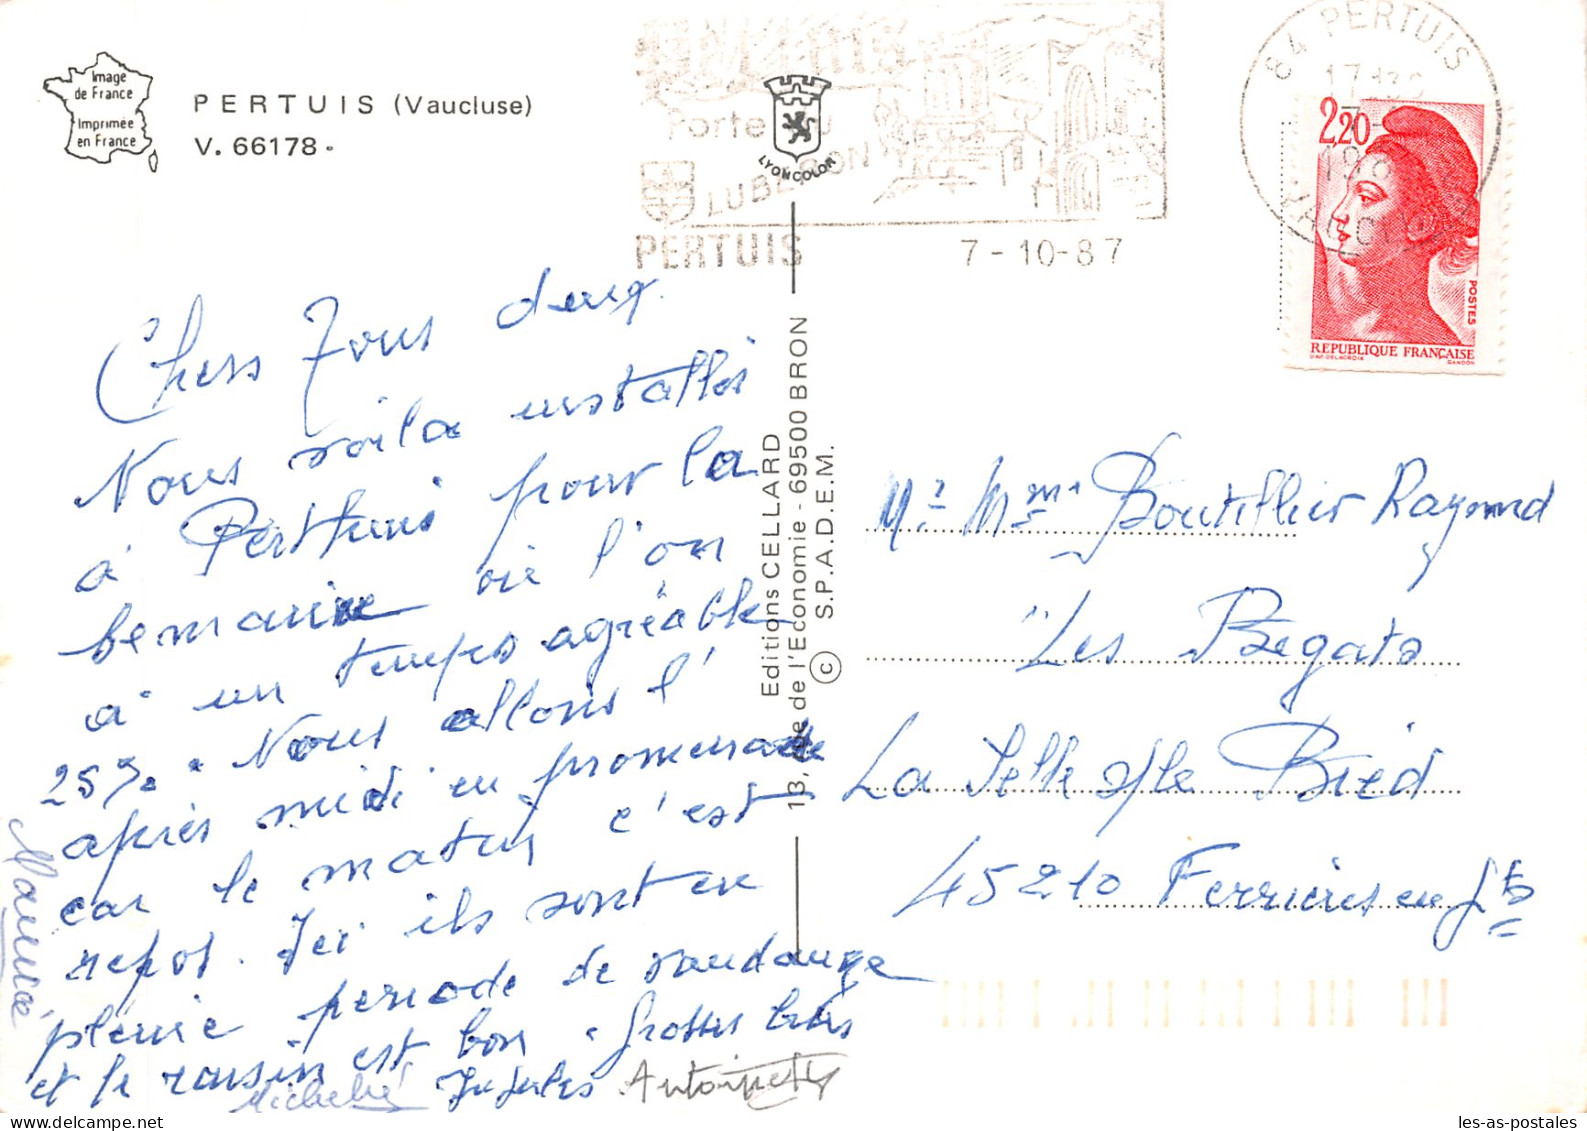 Image
de France
Imprimée
en France
PERTUIS (Vaucluse)
V. 66178.
LYONCOLOR
Porte du
LUBERON
PERTUIS
7-10-87
84 PERTUIS
2,20
POSTES
REPUBLIQUE FRANÇAISE
Editions CELLARD
13, rue de l'Economie - 69500 BRON
S.P.A.D.E.M.
©
Chers Tous deux
Nous voila installés
à Perthuis pour la
semaine où l'on
a un temps agréable
25%. Nous allons l'
après midi en promenade
car le matin c'est
repos. Ici ils sont en
pleine periode de vandange
et le raisin est bon. Grosses bises
Michelle Jujules Antoinette
Maurice
Mr Mme Boutillier Raymond
"Les Begats
La Selle s/le Bied
45210 Ferrières en Gts
les-as-postales